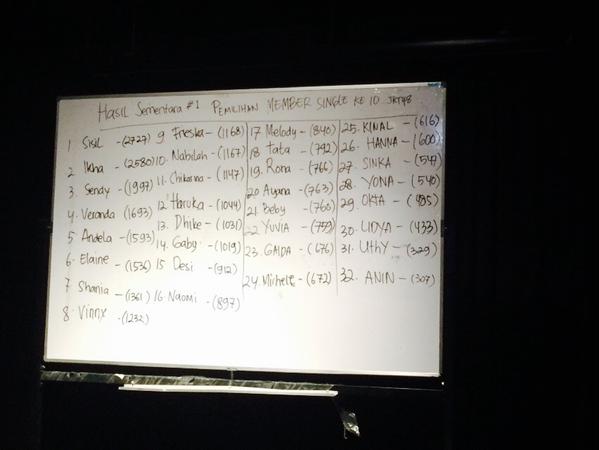 HASIL Sementara #1 PEMILIHAN MEMBER SINGLE KE 10 JKT48
1 Sisil - (2727)
2 Ikha - (2580)
3. Sendy - (1997)
4. Veranda (1693)
5 Andela - (1593)
6. Elaine - (1536)
7 Shania - (1361)
8. Vinny - (1232)
9. Freska - (1168)
10. Nabilah - (1167)
11. Chikarina - (1147)
12 Haruka - (1044)
13. Dhike - (1031)
14. Gaby - (1019)
15 Desi - (912)
16. Naomi - (897)
17 Melody - (840)
18 Tata - (792)
19. Rona - (766)
20 Ayana - (763)
21. Beby - (760)
22 YUVIA - (759)
23. GAIDA - (676)
24. Michele - (672)
25. KINAL - (616)
26. HANNA - (600)
27. SINKA -
28. YONA - (540)
29. OKTA -
30. LIDYA - (433)
31. UthY - (329)
32. ANIN - (307)